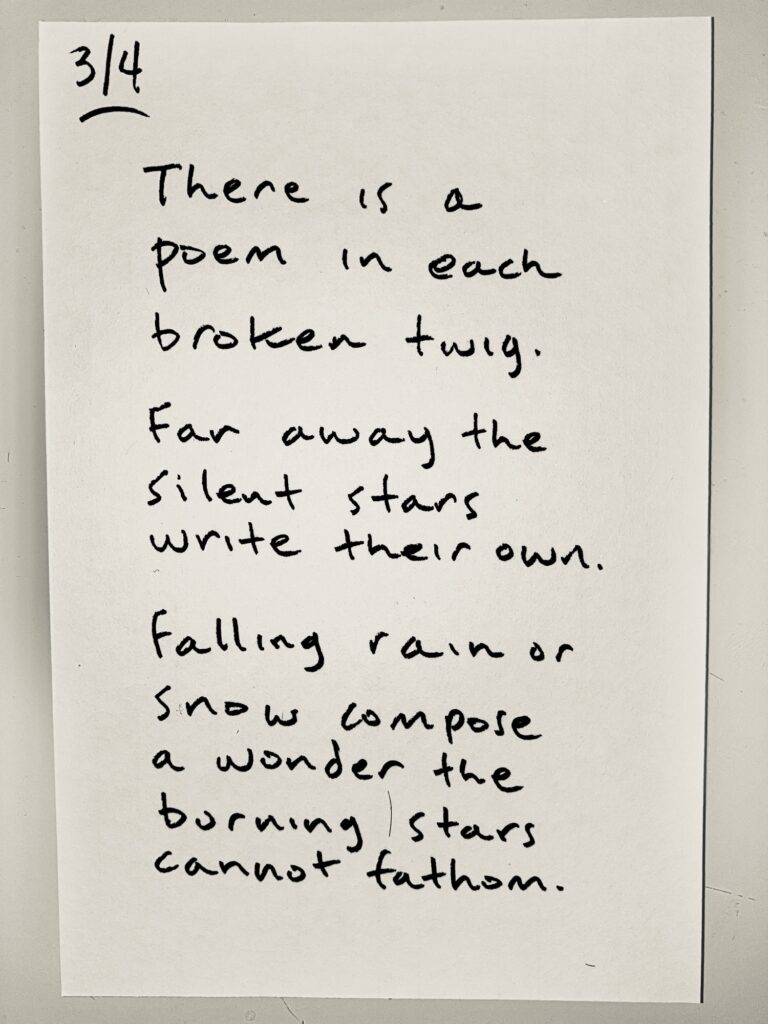 3/4
There is a
poem in each
broken twig.
Far away the
silent stars
write their own.
Falling rain or
snow compose
a wonder the
burning stars
cannot fathom.